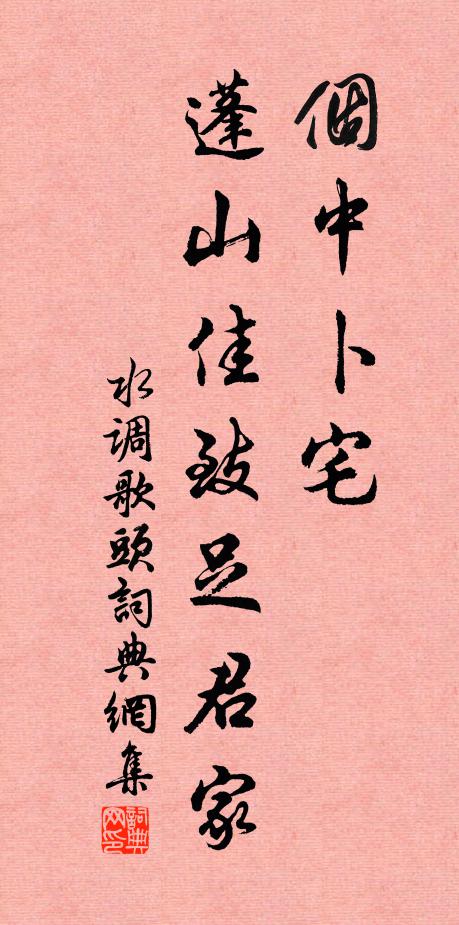 個中卜宅
蓬山佳致足君家
水调歌頭詞典網集
詞典网印